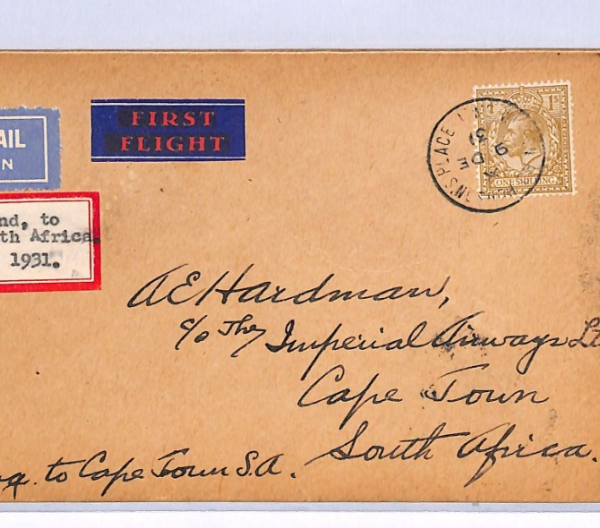 AIL
N
FIRST
FLIGHT
nd, to
th Africa.
1931.
1s
ONE SHILLING
PLACE
9 DE
31
A E Hardman,
c/o The Imperial Airways Lt
Cape Town
South Africa.
to Cape Town S.A.